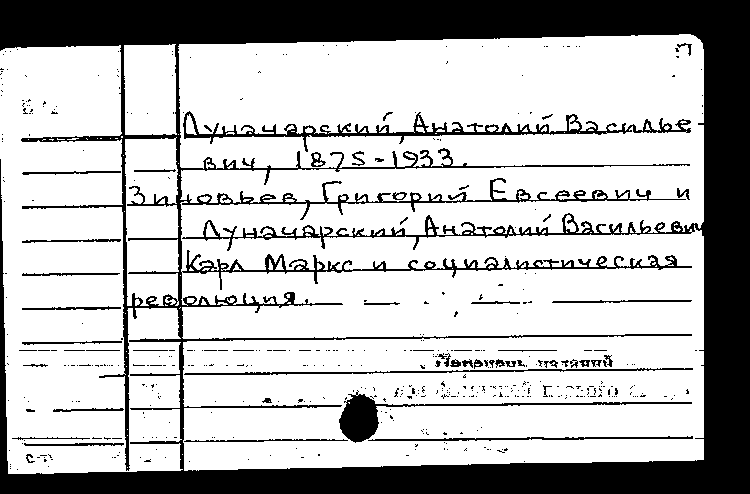 Луначарский, Анатолий Василье-
вич, 1875-1933.
Зиновьев, Григорий Евсеевич и
Луначарский, Анатолий Васильевич
Карл Маркс и социалистическая
революция.